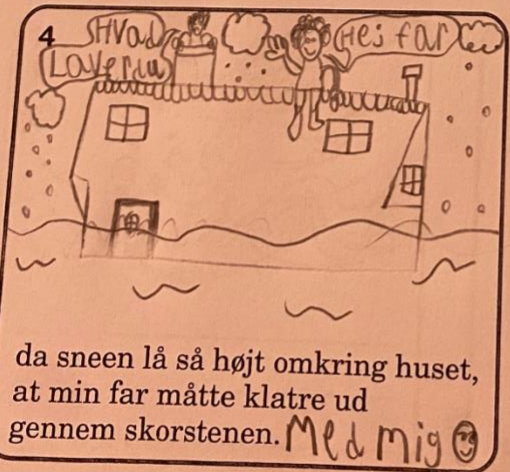 4
Hvad
Laver du
Hej far
da sneen lå så højt omkring huset,
at min far måtte klatre ud
gennem skorstenen. Med mig